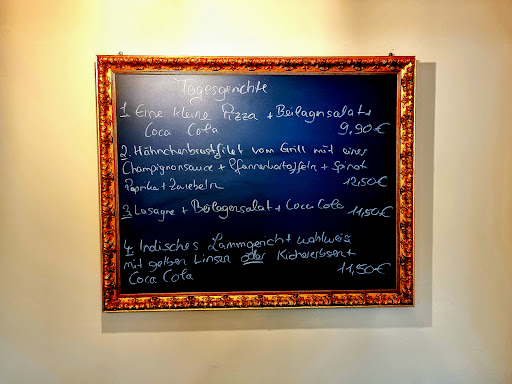 Tagesgerichte
1. Eine kleine Pizza + Beilagensalat +
Coca Cola 9,90€
2. Hähnchenbrustfilet vom Grill mit einer
Champignonsauce + Pfannenkartoffeln + Spinat
Paprika + Zwiebeln 12,50€
3 Lasagne + Beilagensalat + Coca Cola 11,50€
4. Indisches Lammgericht wahlweise
mit gelben Linsen oder Kichererbsen +
Coca Cola 11,50€